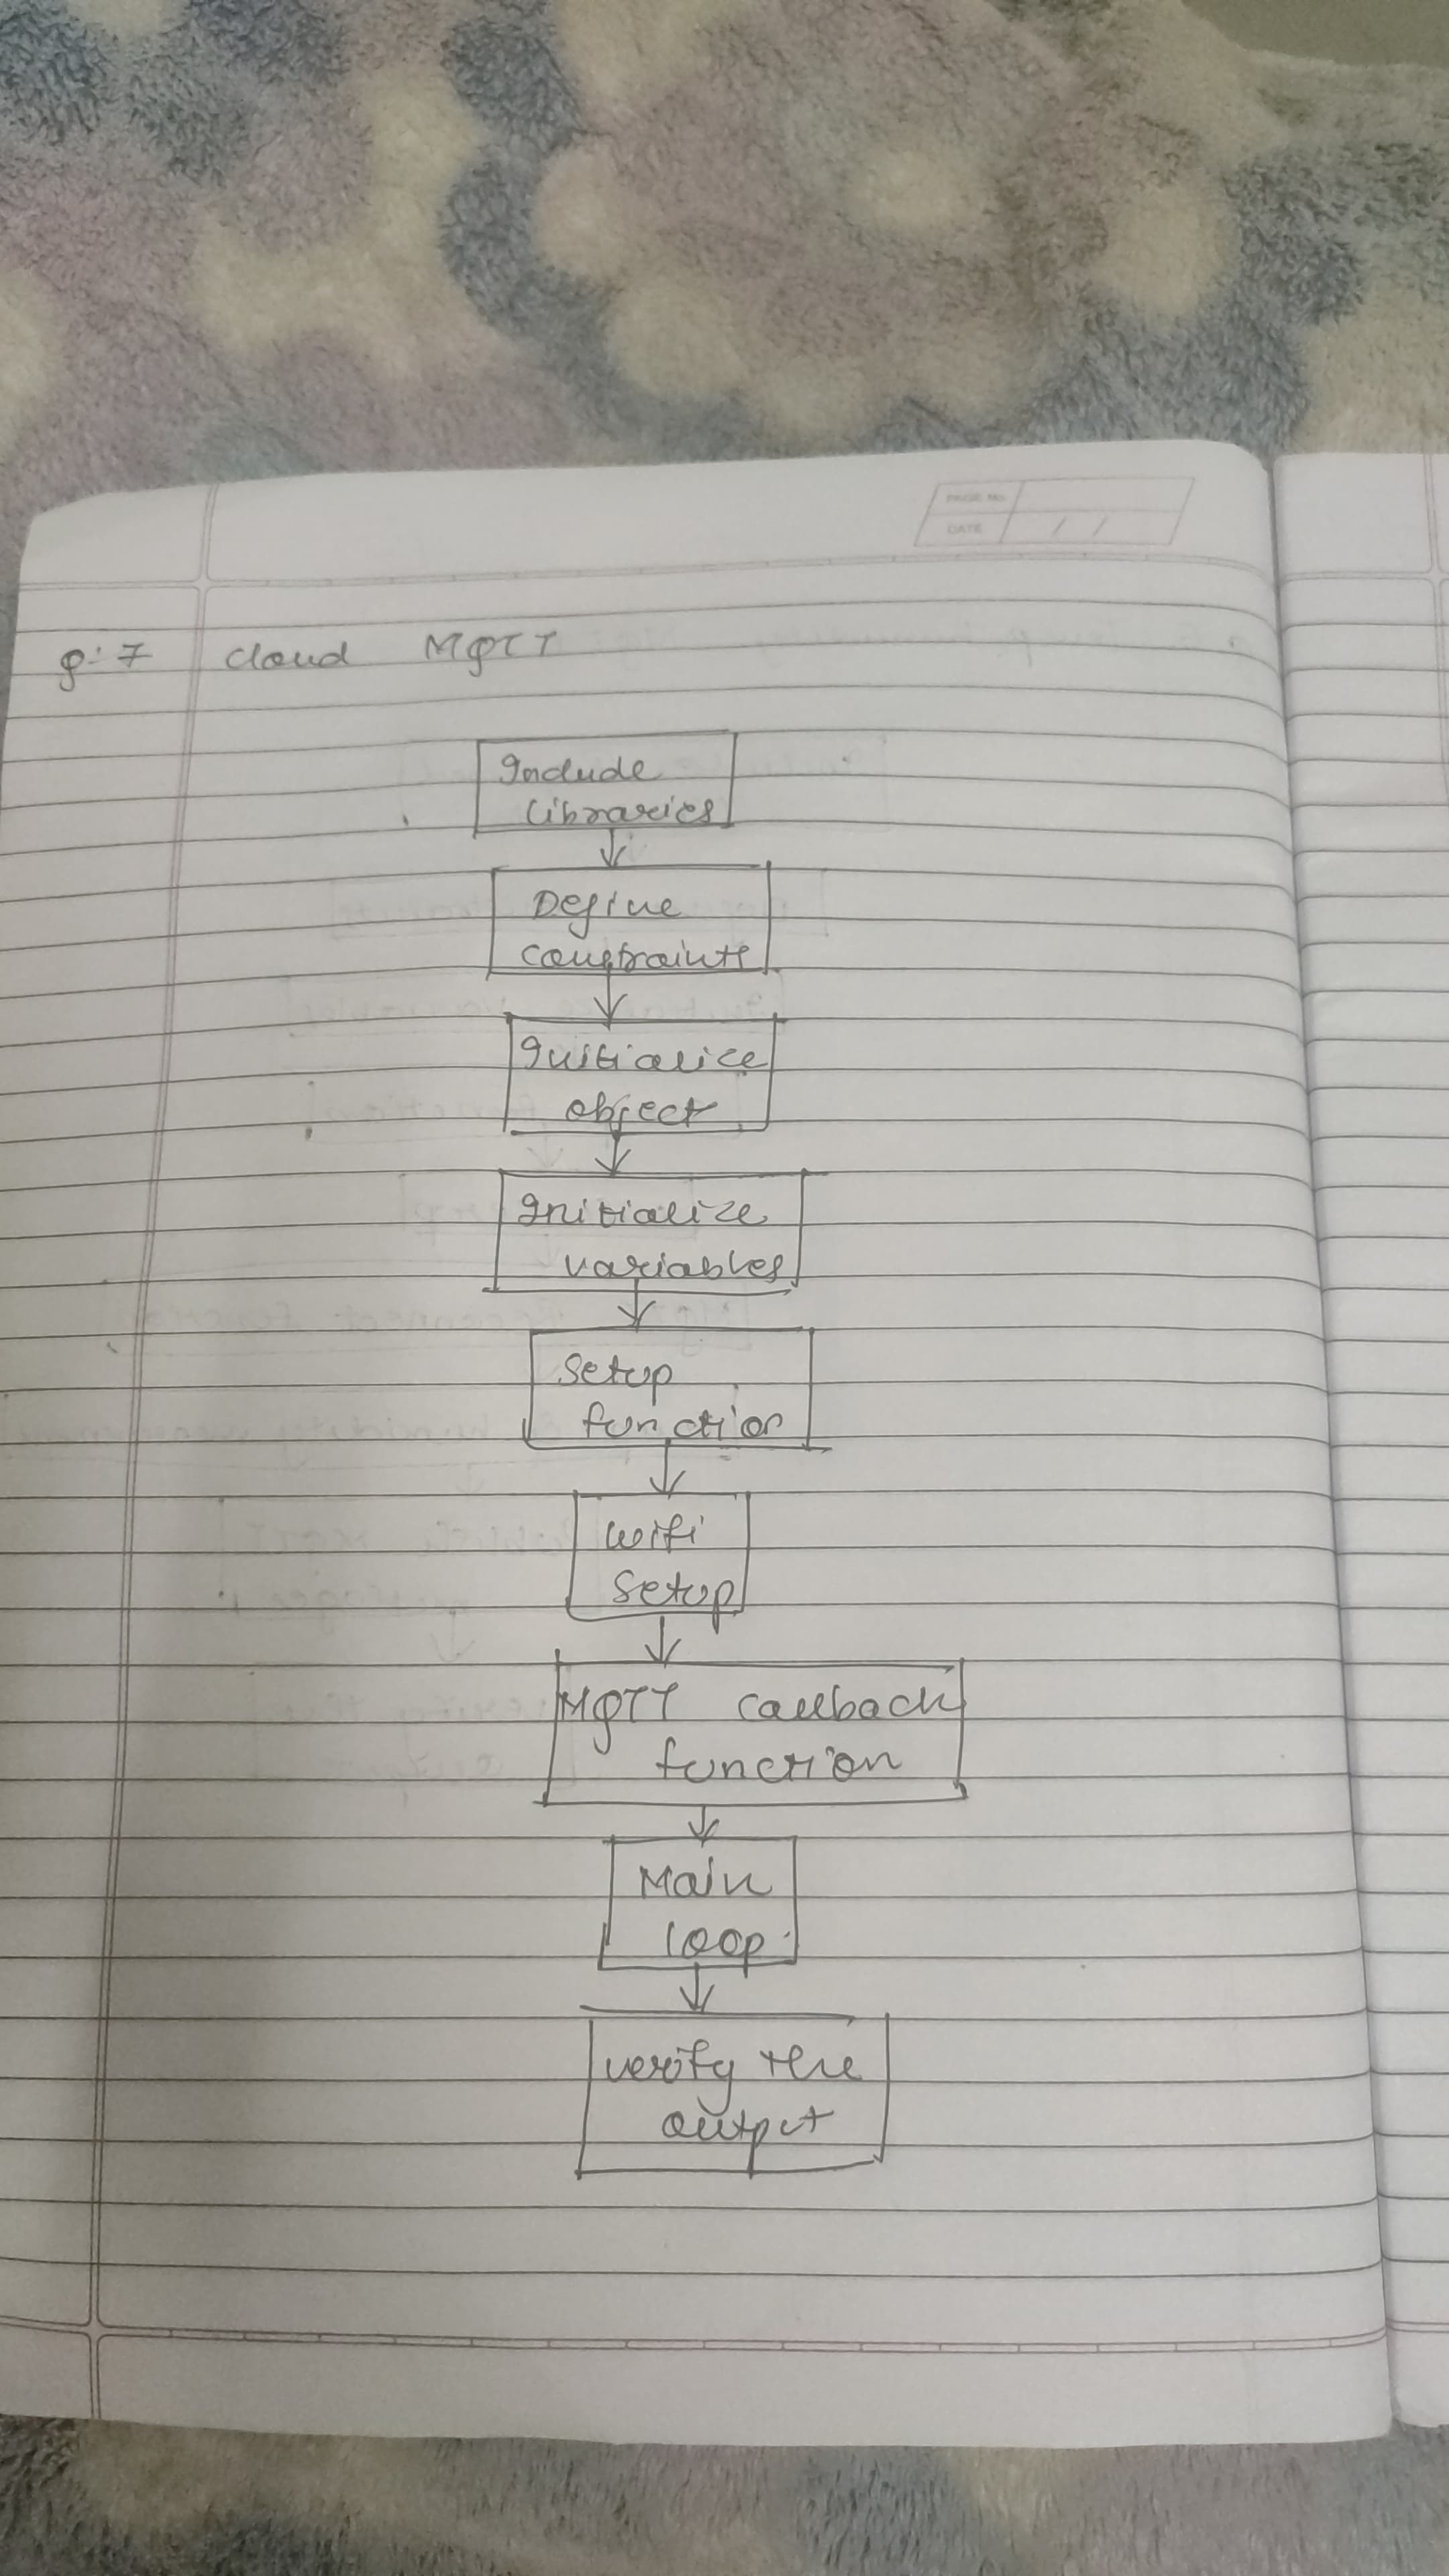 PAGE No.
DATE / /
g:7 cloud MQTT
Include
libraries
Define
constraints
Initialize
object
Initialize
variables
Setup
function
wifi
Setup
MQTT callback
function
Main
loop
verify the
output